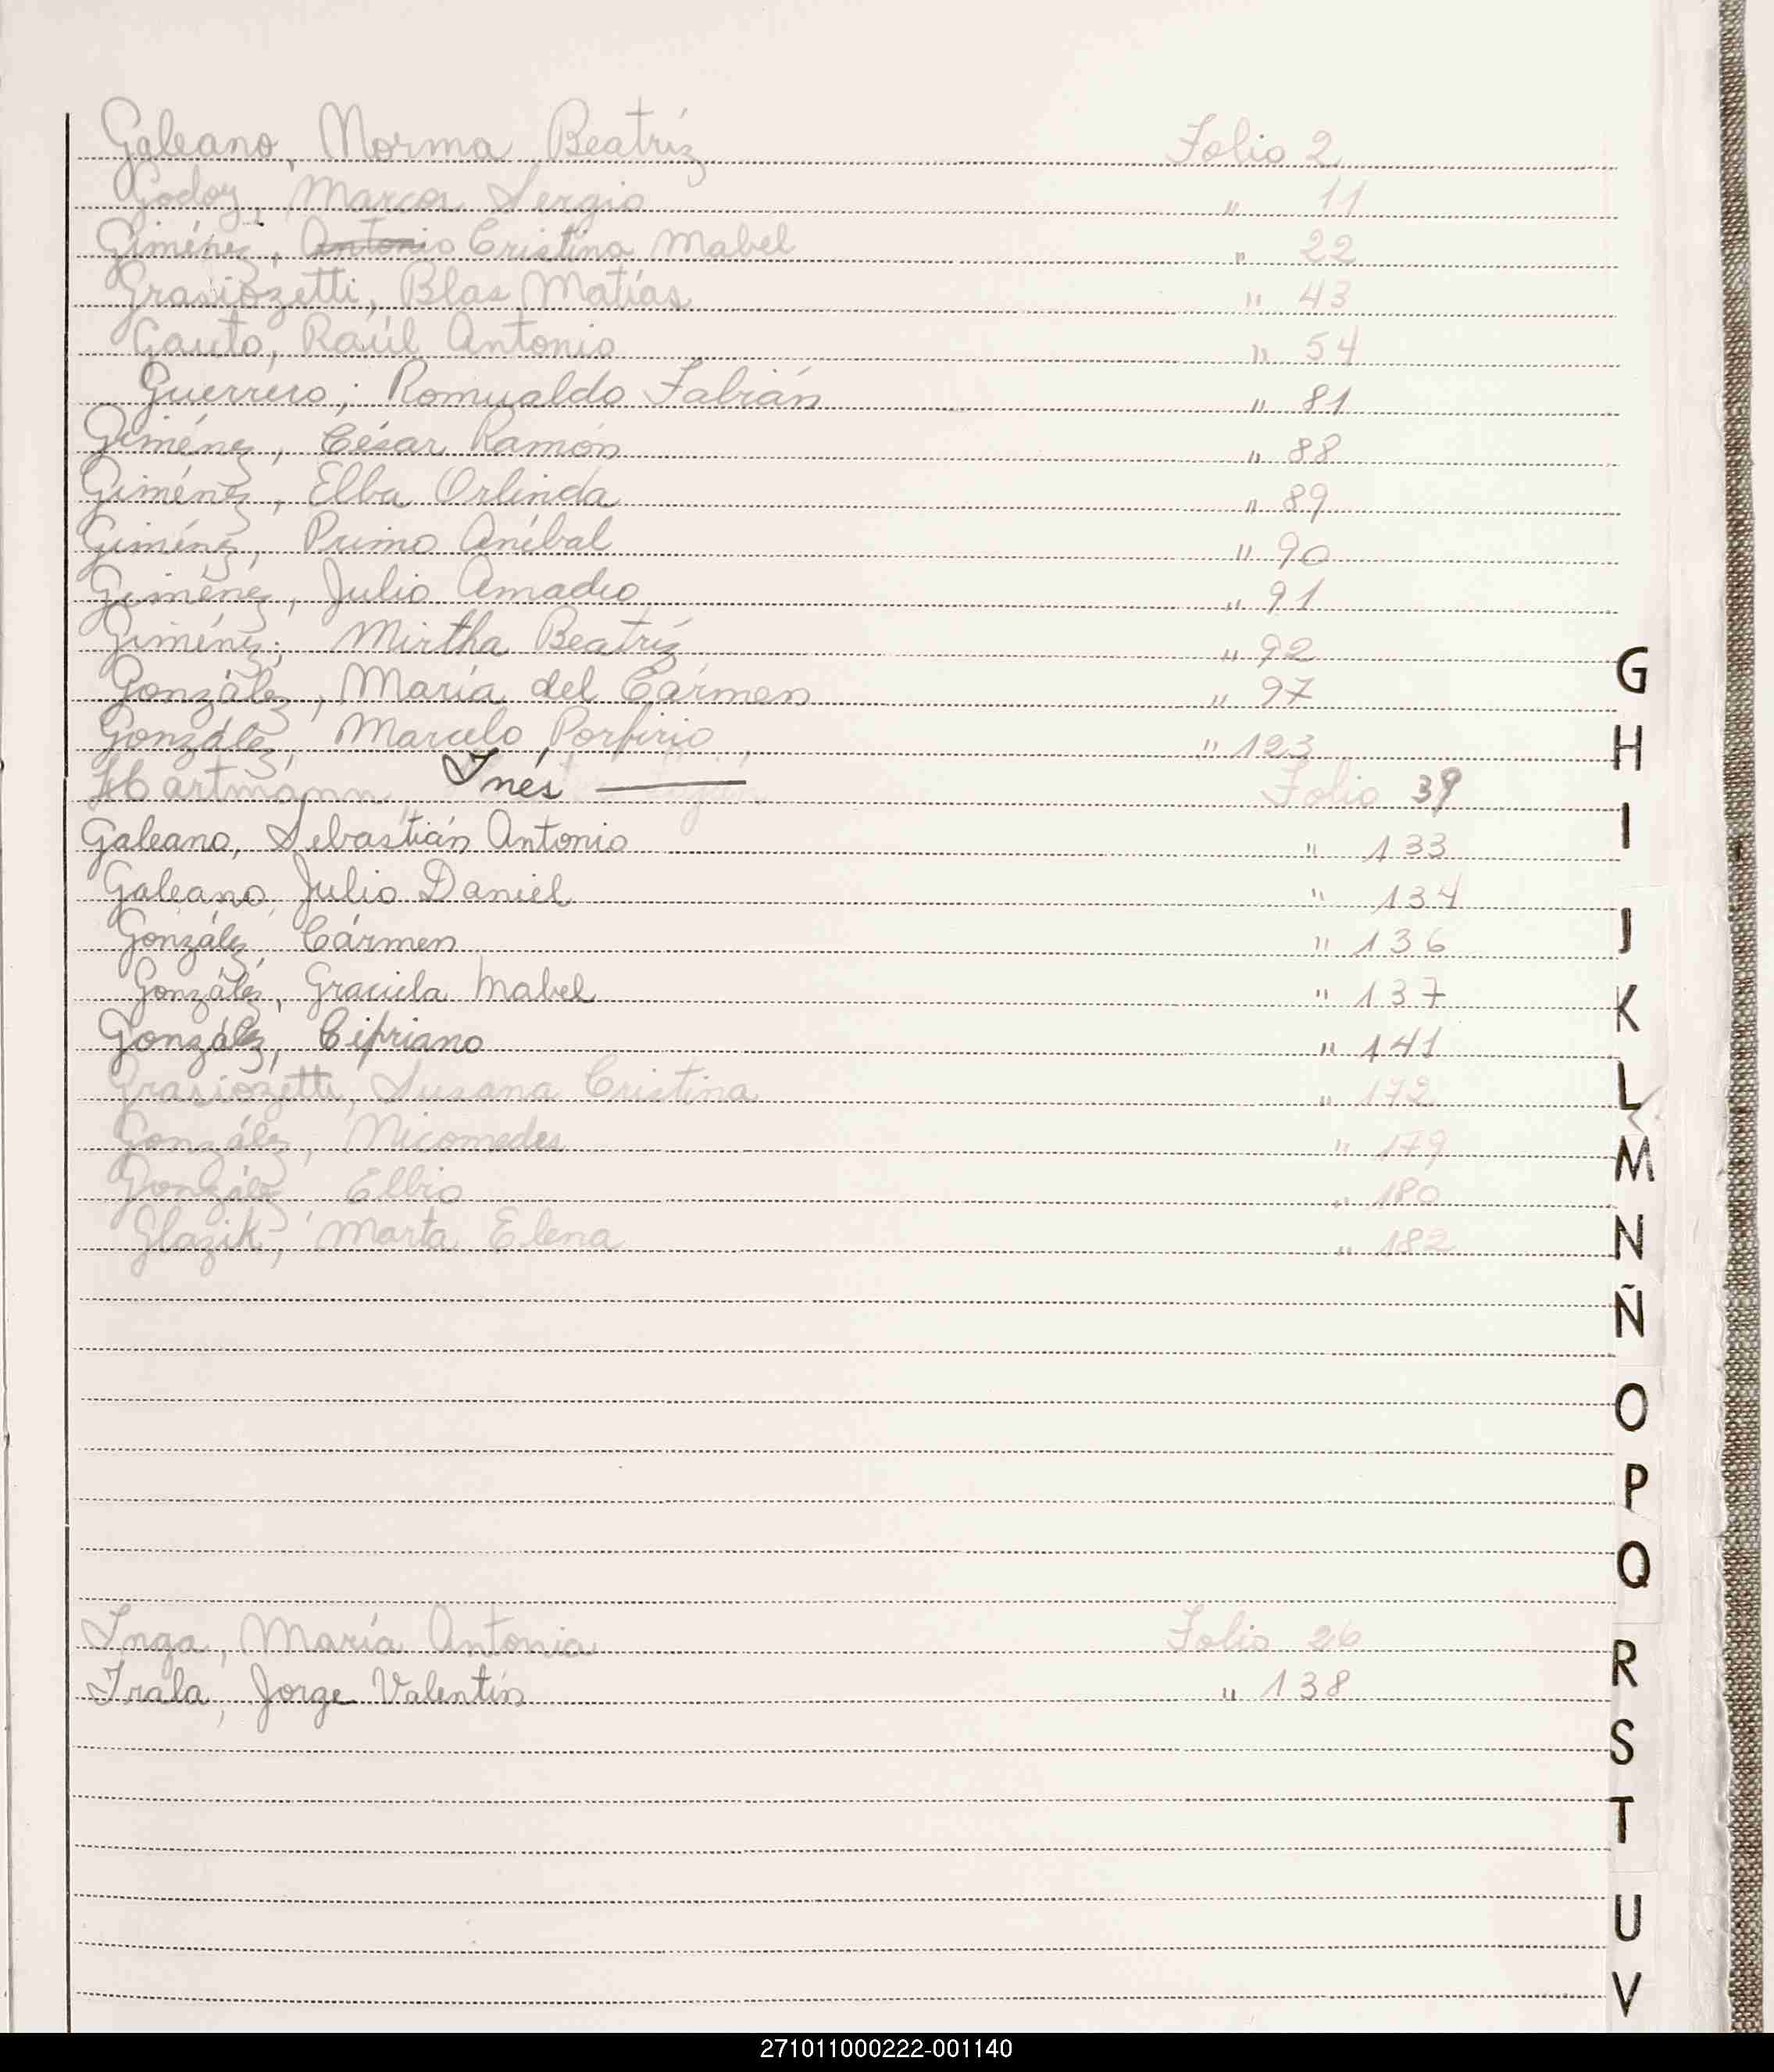 Galeano, Norma Beatríz Folio 2
Godoy, Marcos Sergio " 11
Giménez, Antonio Cristina Mabel " 22
Grasiozetti, Blas Matías " 43
Gauto, Raúl Antonio " 54
Guerrero, Romualdo Fabián " 81
Giménez, César Ramón " 88
Giménez, Elba Orlinda " 89
Giménez, Primo Aníbal " 90
Giménez, Julio Amadeo " 91
Giménez, Mirtha Beatríz " 92
González, María del Cármen " 97
González, Marcelo Porfirio " 123
Hartmann Inés Folio 39
Galeano, Sebastián Antonio " 133
Galeano, Julio Daniel " 134
González, Cármen " 136
González, Graciela Mabel " 137
González, Cipriano " 141
Grasiozetti, Susana Cristina " 172
González, Nicomedes " 179
González, Elbio " 180
Glazik, Marta Elena " 182
Inga, María Antonia Folio 26
Irala, Jorge Valentín " 138
G
H
I
J
K
L
M
N
Ñ
O
P
Q
R
S
T
U
V
271011000222-001140